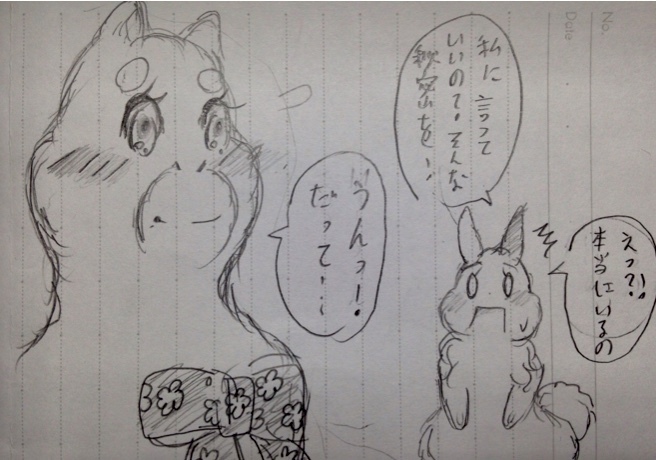 No.
Date
えっ?!
本当にいるの
私に言って
いいので!そんな
秘密を!
うんっ!
だって・・・